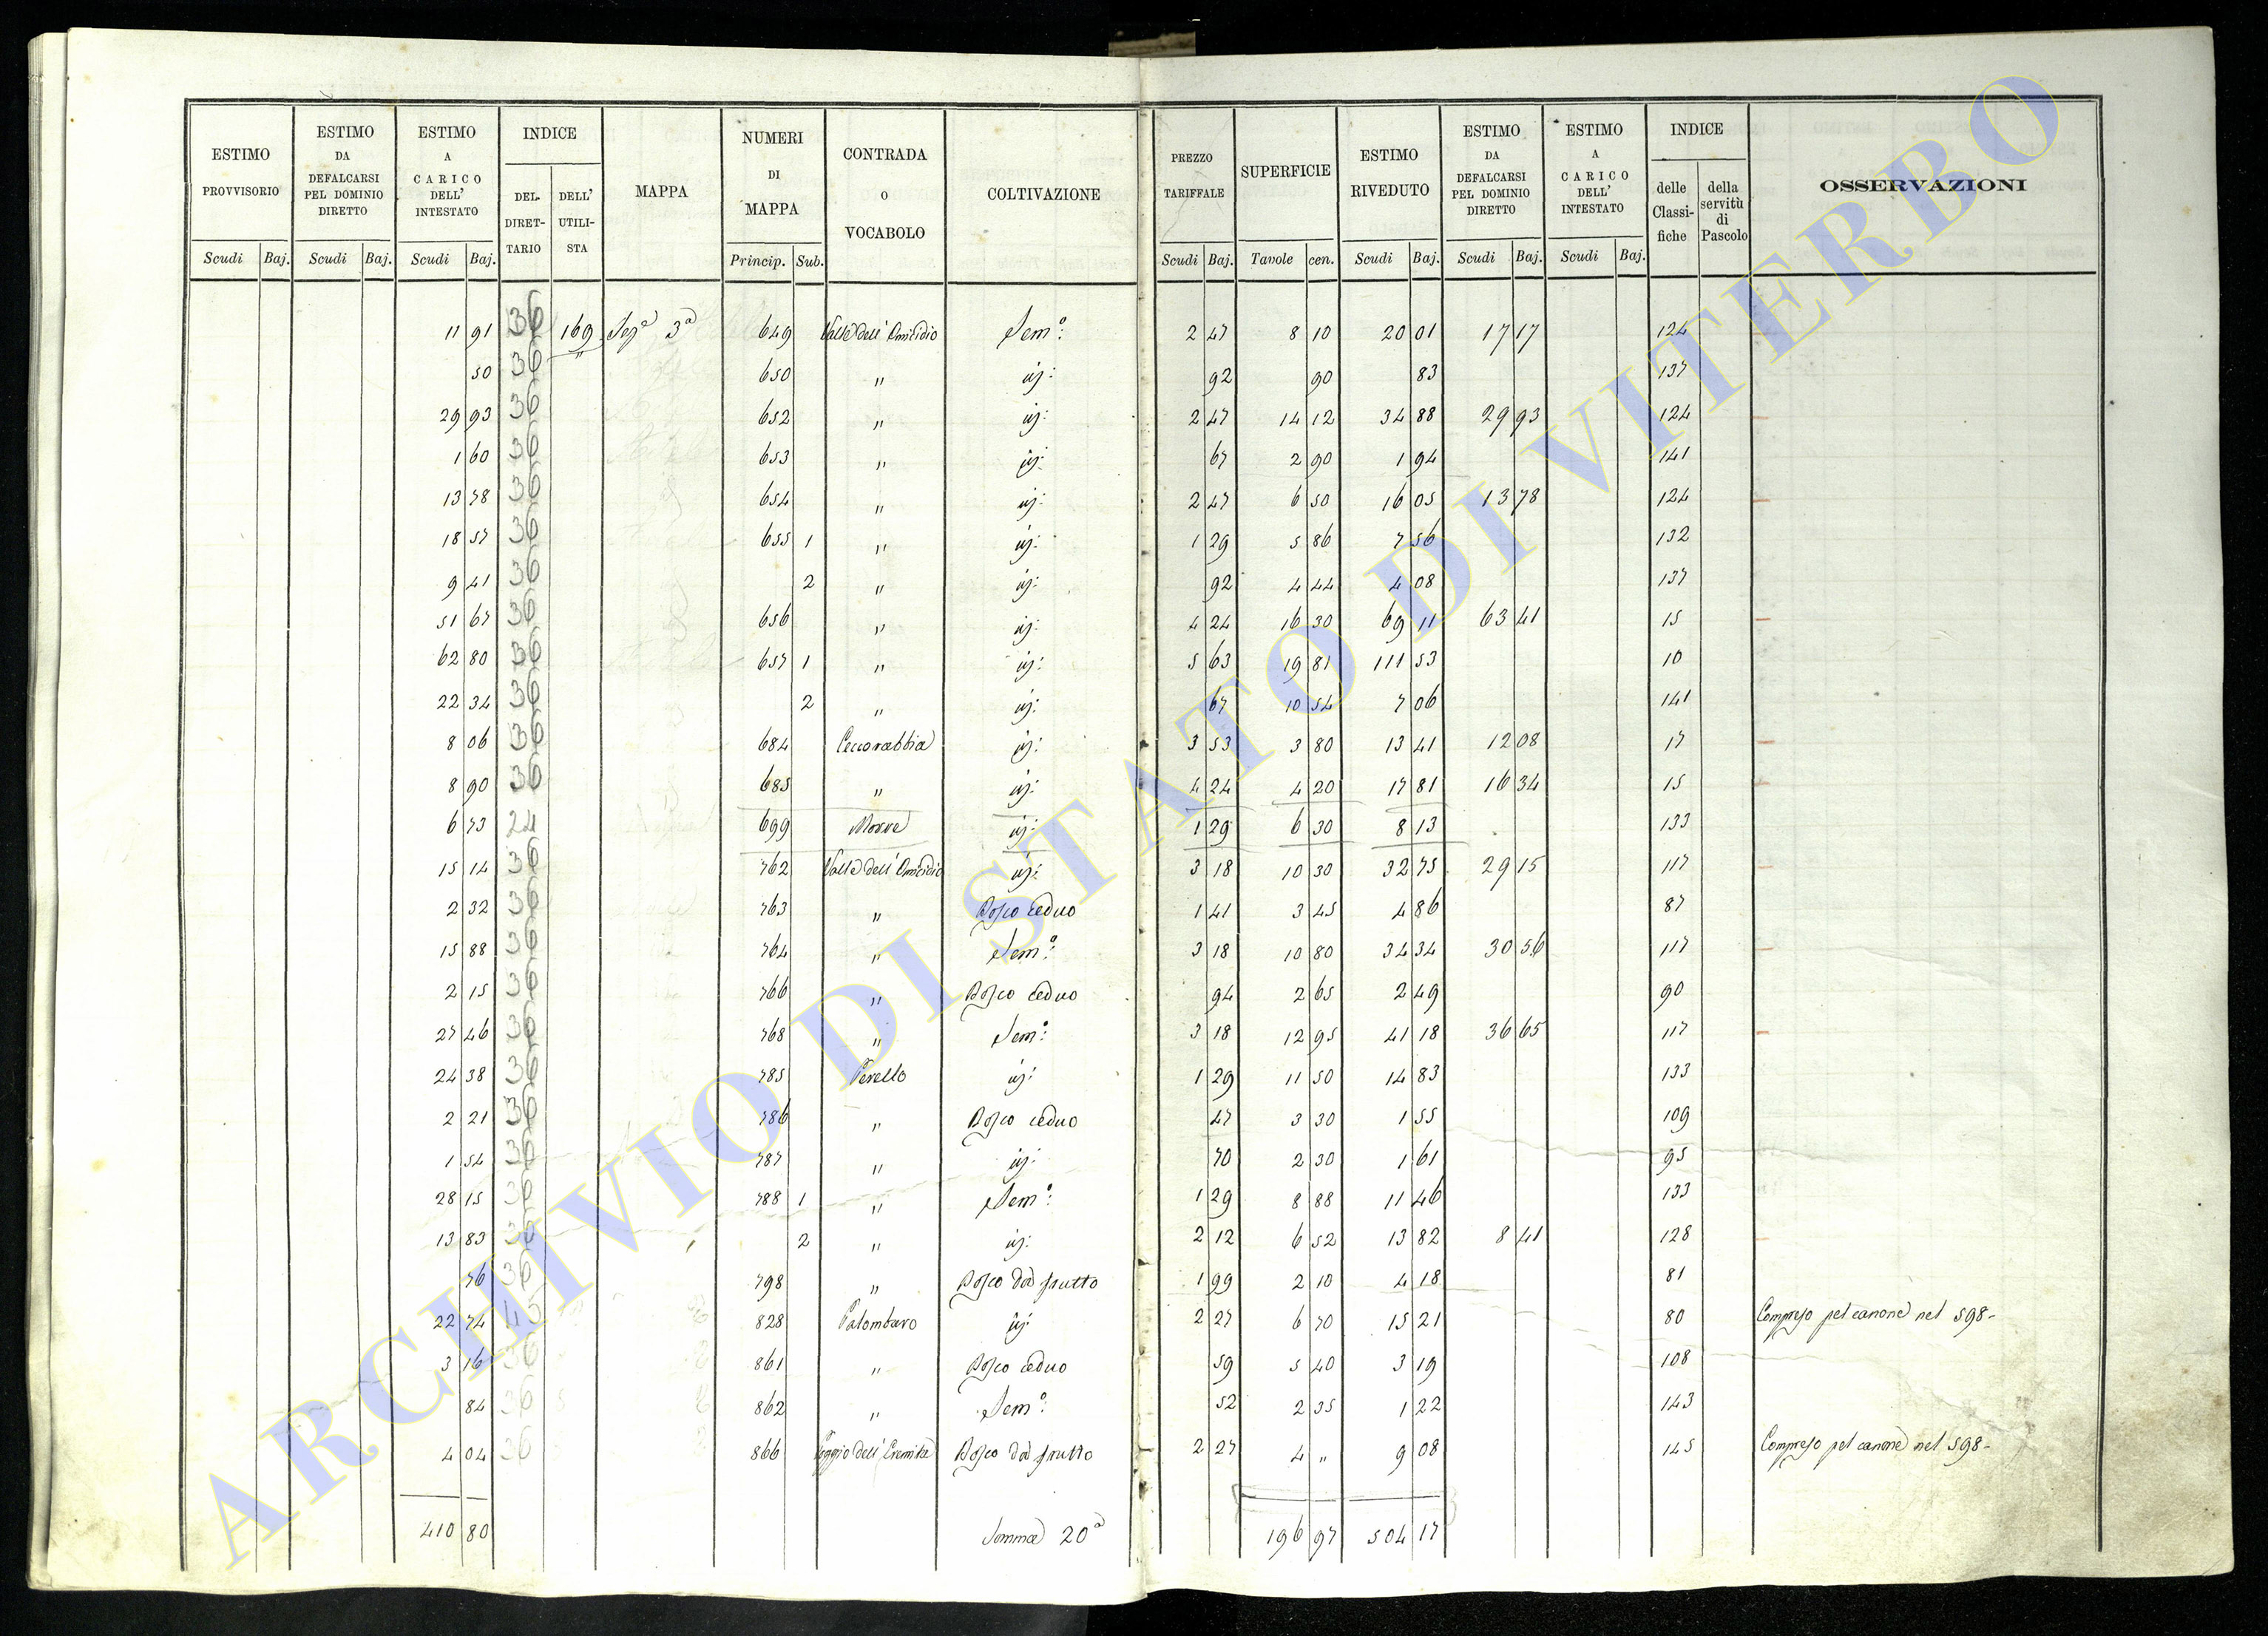 ESTIMO PROVVISORIO | ESTIMO DA DEFALCARSI PEL DOMINIO DIRETTO | ESTIMO A CARICO DELL' INTESTATO | INDICE | MAPPA | NUMERI DI MAPPA | CONTRADA O VOCABOLO | COLTIVAZIONE | PREZZO TARIFFALE | SUPERFICIE | ESTIMO RIVEDUTO | ESTIMO DA DEFALCARSI PEL DOMINIO DIRETTO | ESTIMO A CARICO DELL' INTESTATO | INDICE | OSSERVAZIONI
DEL DIRETTARIO | DELL' UTILISTA | delle Classifiche | della servitù di Pascolo
Scudi | Baj. | Scudi | Baj. | Scudi | Baj. | Princip. | Sub. | Scudi | Baj. | Tavole | cen. | Scudi | Baj. | Scudi | Baj. | Scudi | Baj.
11 91 36 169 Seg.e 3a 649 Valle dell' Omicidio Sem.o: 2 47 8 10 20 01 17 17 124
50 36 " 650 " id: 92 90 83 137
29 93 36 652 " id: 2 47 14 12 34 88 29 93 124
1 60 36 653 " id: 67 2 90 1 94 141
13 78 36 654 " id: 2 47 6 50 16 05 13 78 124
18 57 36 655 1 " id: 1 29 5 86 7 56 132
9 41 36 2 " id: 92 4 44 4 08 137
51 67 36 656 " id: 4 24 16 30 69 11 63 41 15
62 80 36 657 1 " id: 5 63 19 81 111 53 10
22 34 36 2 " id: 67 10 54 7 06 141
8 06 36 684 Ceccorabbia id: 3 53 3 80 13 41 12 08 17
8 90 36 685 " id: 4 24 4 20 17 81 16 34 15
6 73 24 699 id: 1 29 6 30 8 13 133
15 14 36 762 Valle dell' Omicidio id: 3 18 10 30 32 75 29 15 117
2 32 36 763 " Bosco ceduo 1 41 3 45 4 86 87
15 88 36 764 " Sem.o: 3 18 10 80 34 34 30 56 117
2 15 36 766 " Bosco ceduo 94 2 65 2 49 90
27 46 36 768 " Sem.o: 3 18 12 95 41 18 36 65 117
24 38 36 785 Perello id: 1 29 11 50 14 83 133
2 21 36 786 " Bosco ceduo 47 3 30 1 55 109
1 54 36 787 " id: 70 2 30 1 61 95
28 15 36 788 1 " Sem.o: 1 29 8 88 11 46 133
13 83 36 2 " id: 2 12 6 52 13 82 8 41 128
76 36 798 " Bosco da frutto 1 99 2 10 4 18 81
22 74 828 Palombaro id: 2 27 6 70 15 21 80 Compreso pel canone nel 598-
3 16 36 861 " Bosco ceduo 59 5 40 3 19 108
84 36 862 " Sem.o: 52 2 35 1 22 143
4 04 36 866 Poggio dell' Eremita Bosco da frutto 2 27 4 " 9 08 145 Compreso pel canone nel 598-
410 80 Somma 20a 196 97 504 17
ARCHIVIO DI STATO DI VITERBO